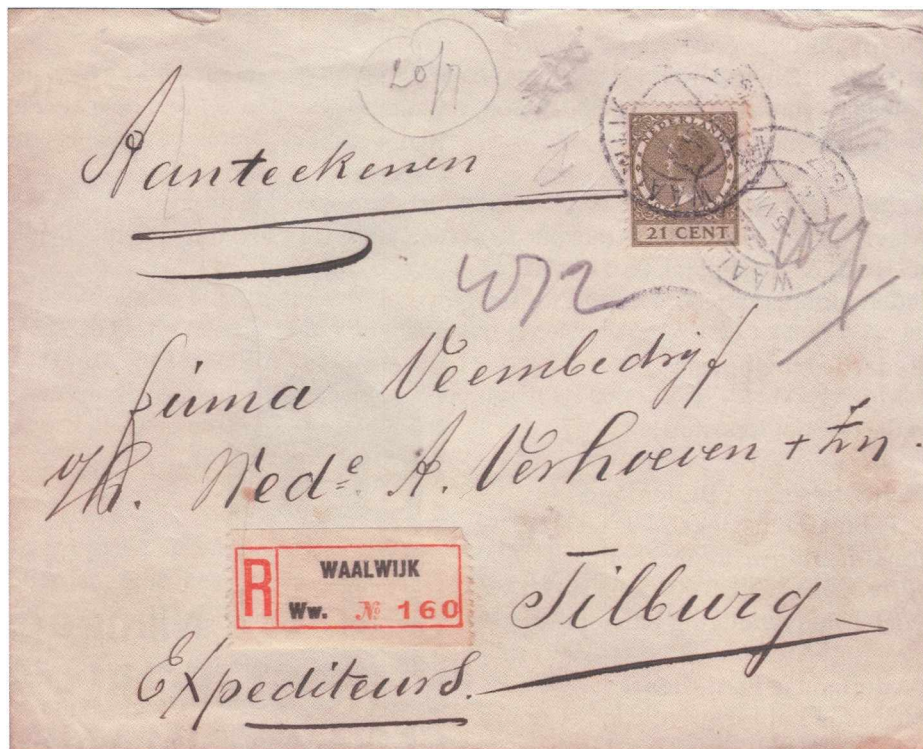 20/7
Aanteekenen
NEDERLAND
21 CENT
WAALWIJK
1927
Firma Veembedrijf
v/h. Wede. A. Verhoeven + Zn.
R WAALWIJK
Ww. № 160
Tilburg
Expediteurs.